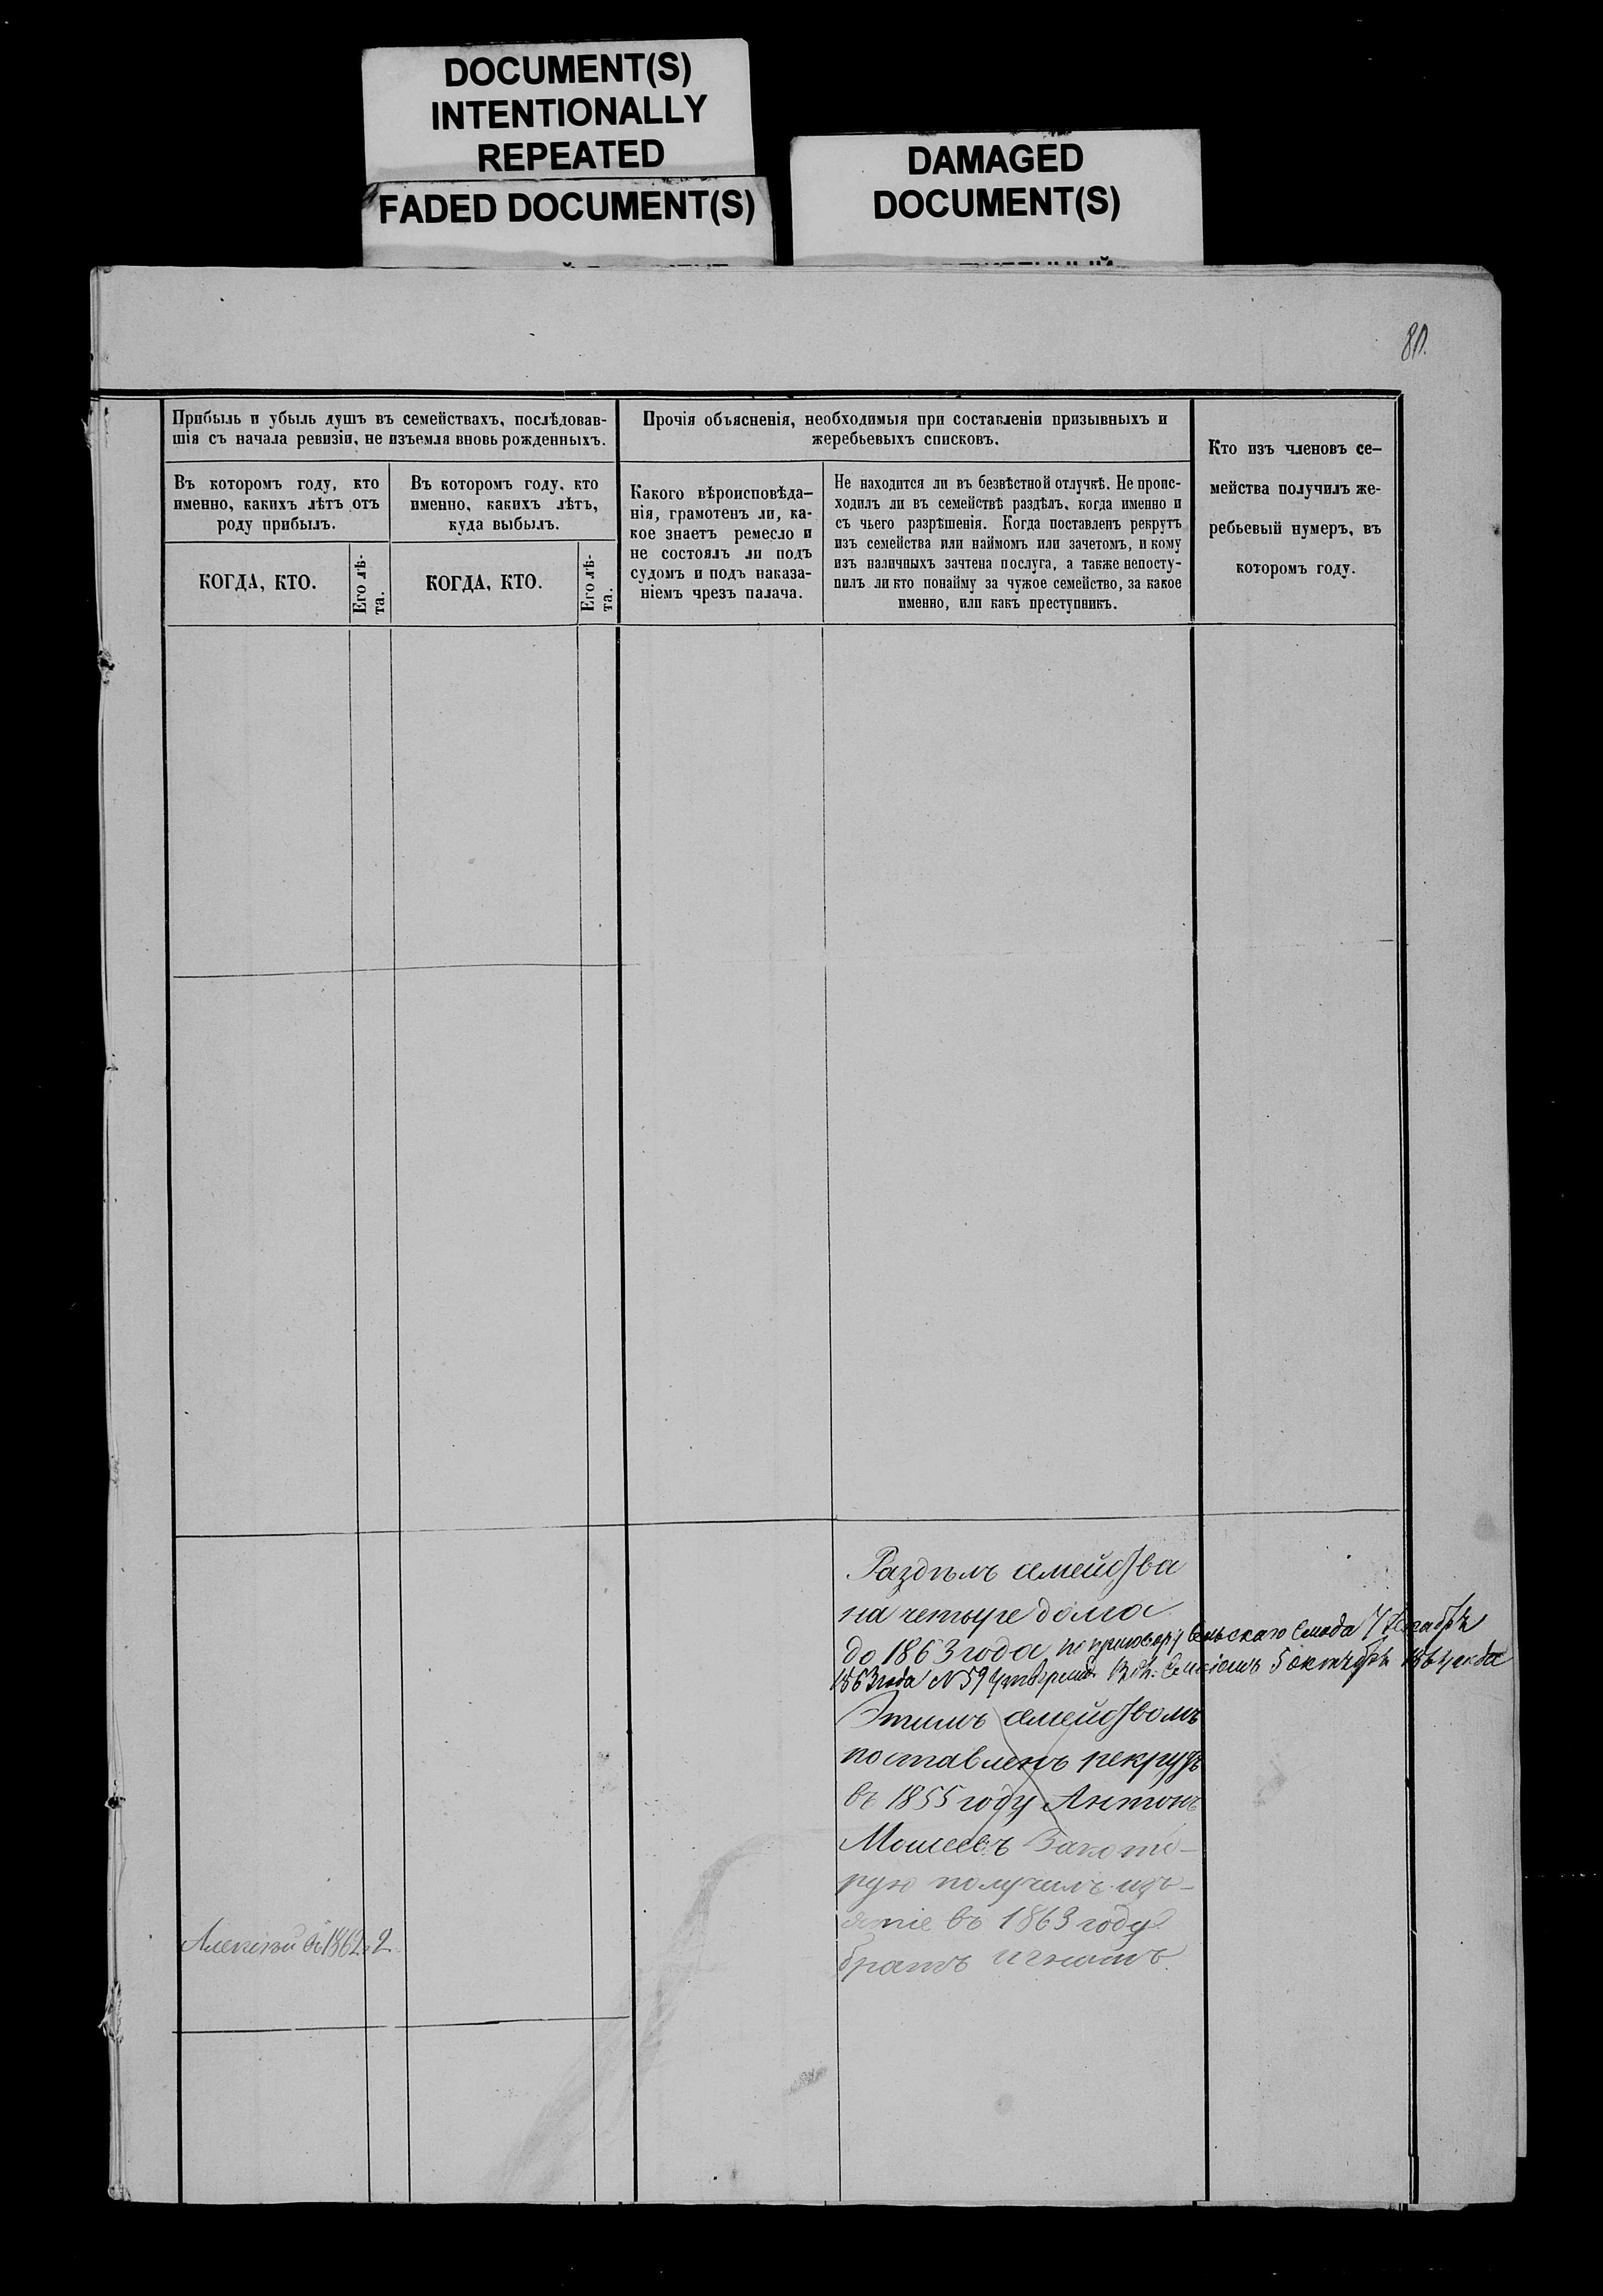 DOCUMENT(S)
INTENTIONALLY
REPEATED
FADED DOCUMENT(S)
DAMAGED
DOCUMENT(S)
80.
Прибыль и убыль душъ въ семействахъ, послѣдовав-
шія съ начала ревизіи, не изъемля вновь рожденныхъ.
Въ которомъ году, кто
именно, какихъ лѣтъ отъ
роду прибылъ.
КОГДА, КТО.
Его лѣ-
та.
Въ которомъ году, кто
именно, какихъ лѣтъ,
куда выбылъ.
КОГДА, КТО.
Его лѣ-
та.
Прочія объясненія, необходимыя при составленіи призывныхъ и
жеребьевыхъ списковъ.
Какого вѣроисповѣда-
нія, грамотенъ ли, ка-
кое знаетъ ремесло и
не состоялъ ли подъ
судомъ и подъ наказа-
ніемъ чрезъ палача.
Не находится ли въ безвѣстной отлучкѣ. Не проис-
ходилъ ли въ семействѣ раздѣлъ, когда именно и
съ чьего разрѣшенія. Когда поставленъ рекрутъ
изъ семейства или наймомъ или зачетомъ, и кому
изъ наличныхъ зачтена послуга, а также непосту-
пилъ ли кто понайму за чужое семейство, за какое
именно, или какъ преступникъ.
Кто изъ членовъ се-
мейства получилъ же-
ребьевый нумеръ, въ
которомъ году.
Раздѣлъ семейства
на четыре дома
до 1863 года по приговору Сельскаго Схода 7 декабря
1863 года N 59 5 октября 1864 года
Этимъ семействомъ
поставленъ рекрутъ
въ 1855 году Антонъ
Моисеевъ Закото-
рую получилъ изъ-
ятіе въ 1863 году
братъ Игнатъ.
Алексѣй въ 1862. 2.